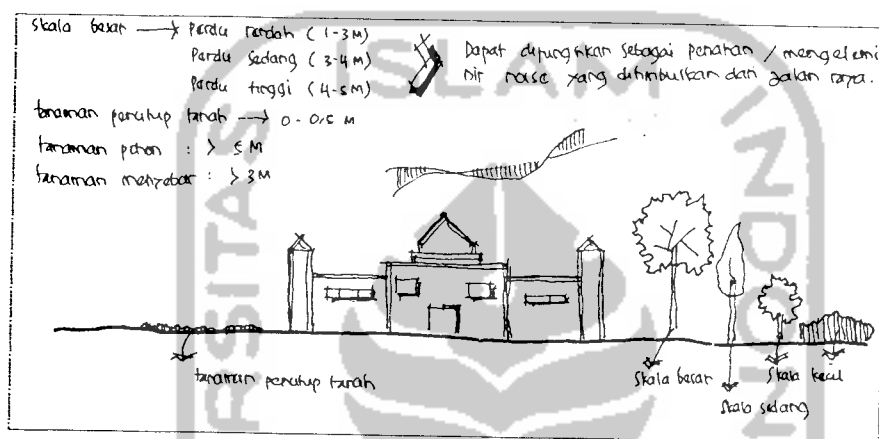 Skala besar → Perdu rendah (1-3M)
Perdu sedang (3-4M)
Perdu tinggi (4-5M)
Dapat difungsikan sebagai penahan / mengelimi
nir noise yang ditimbulkan dari jalan raya.
tanaman penutup tanah → 0 - 0,5 M
tanaman pohon : > 5 M
tanaman menyebar : > 3M
tanaman penutup tanah
Skala besar
Skala sedang
Skala kecil
ISLAM